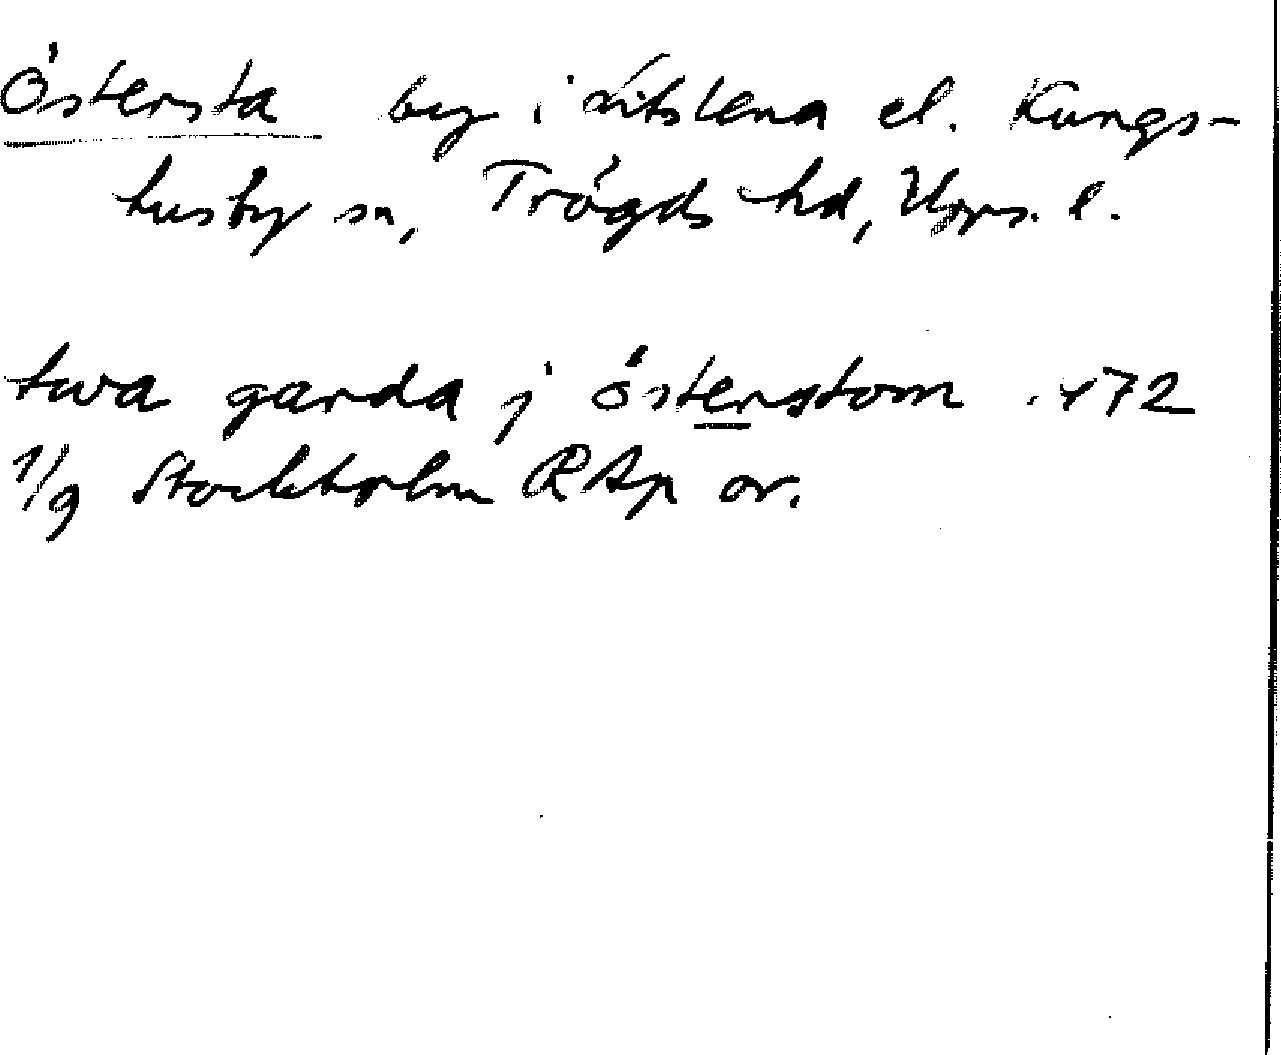 Östersta by i Litslena el. Kungs-
husby sn, Trögds hd, Upps. l.
twa garda j österstom 1472
1/9 Stockholm RAp or.